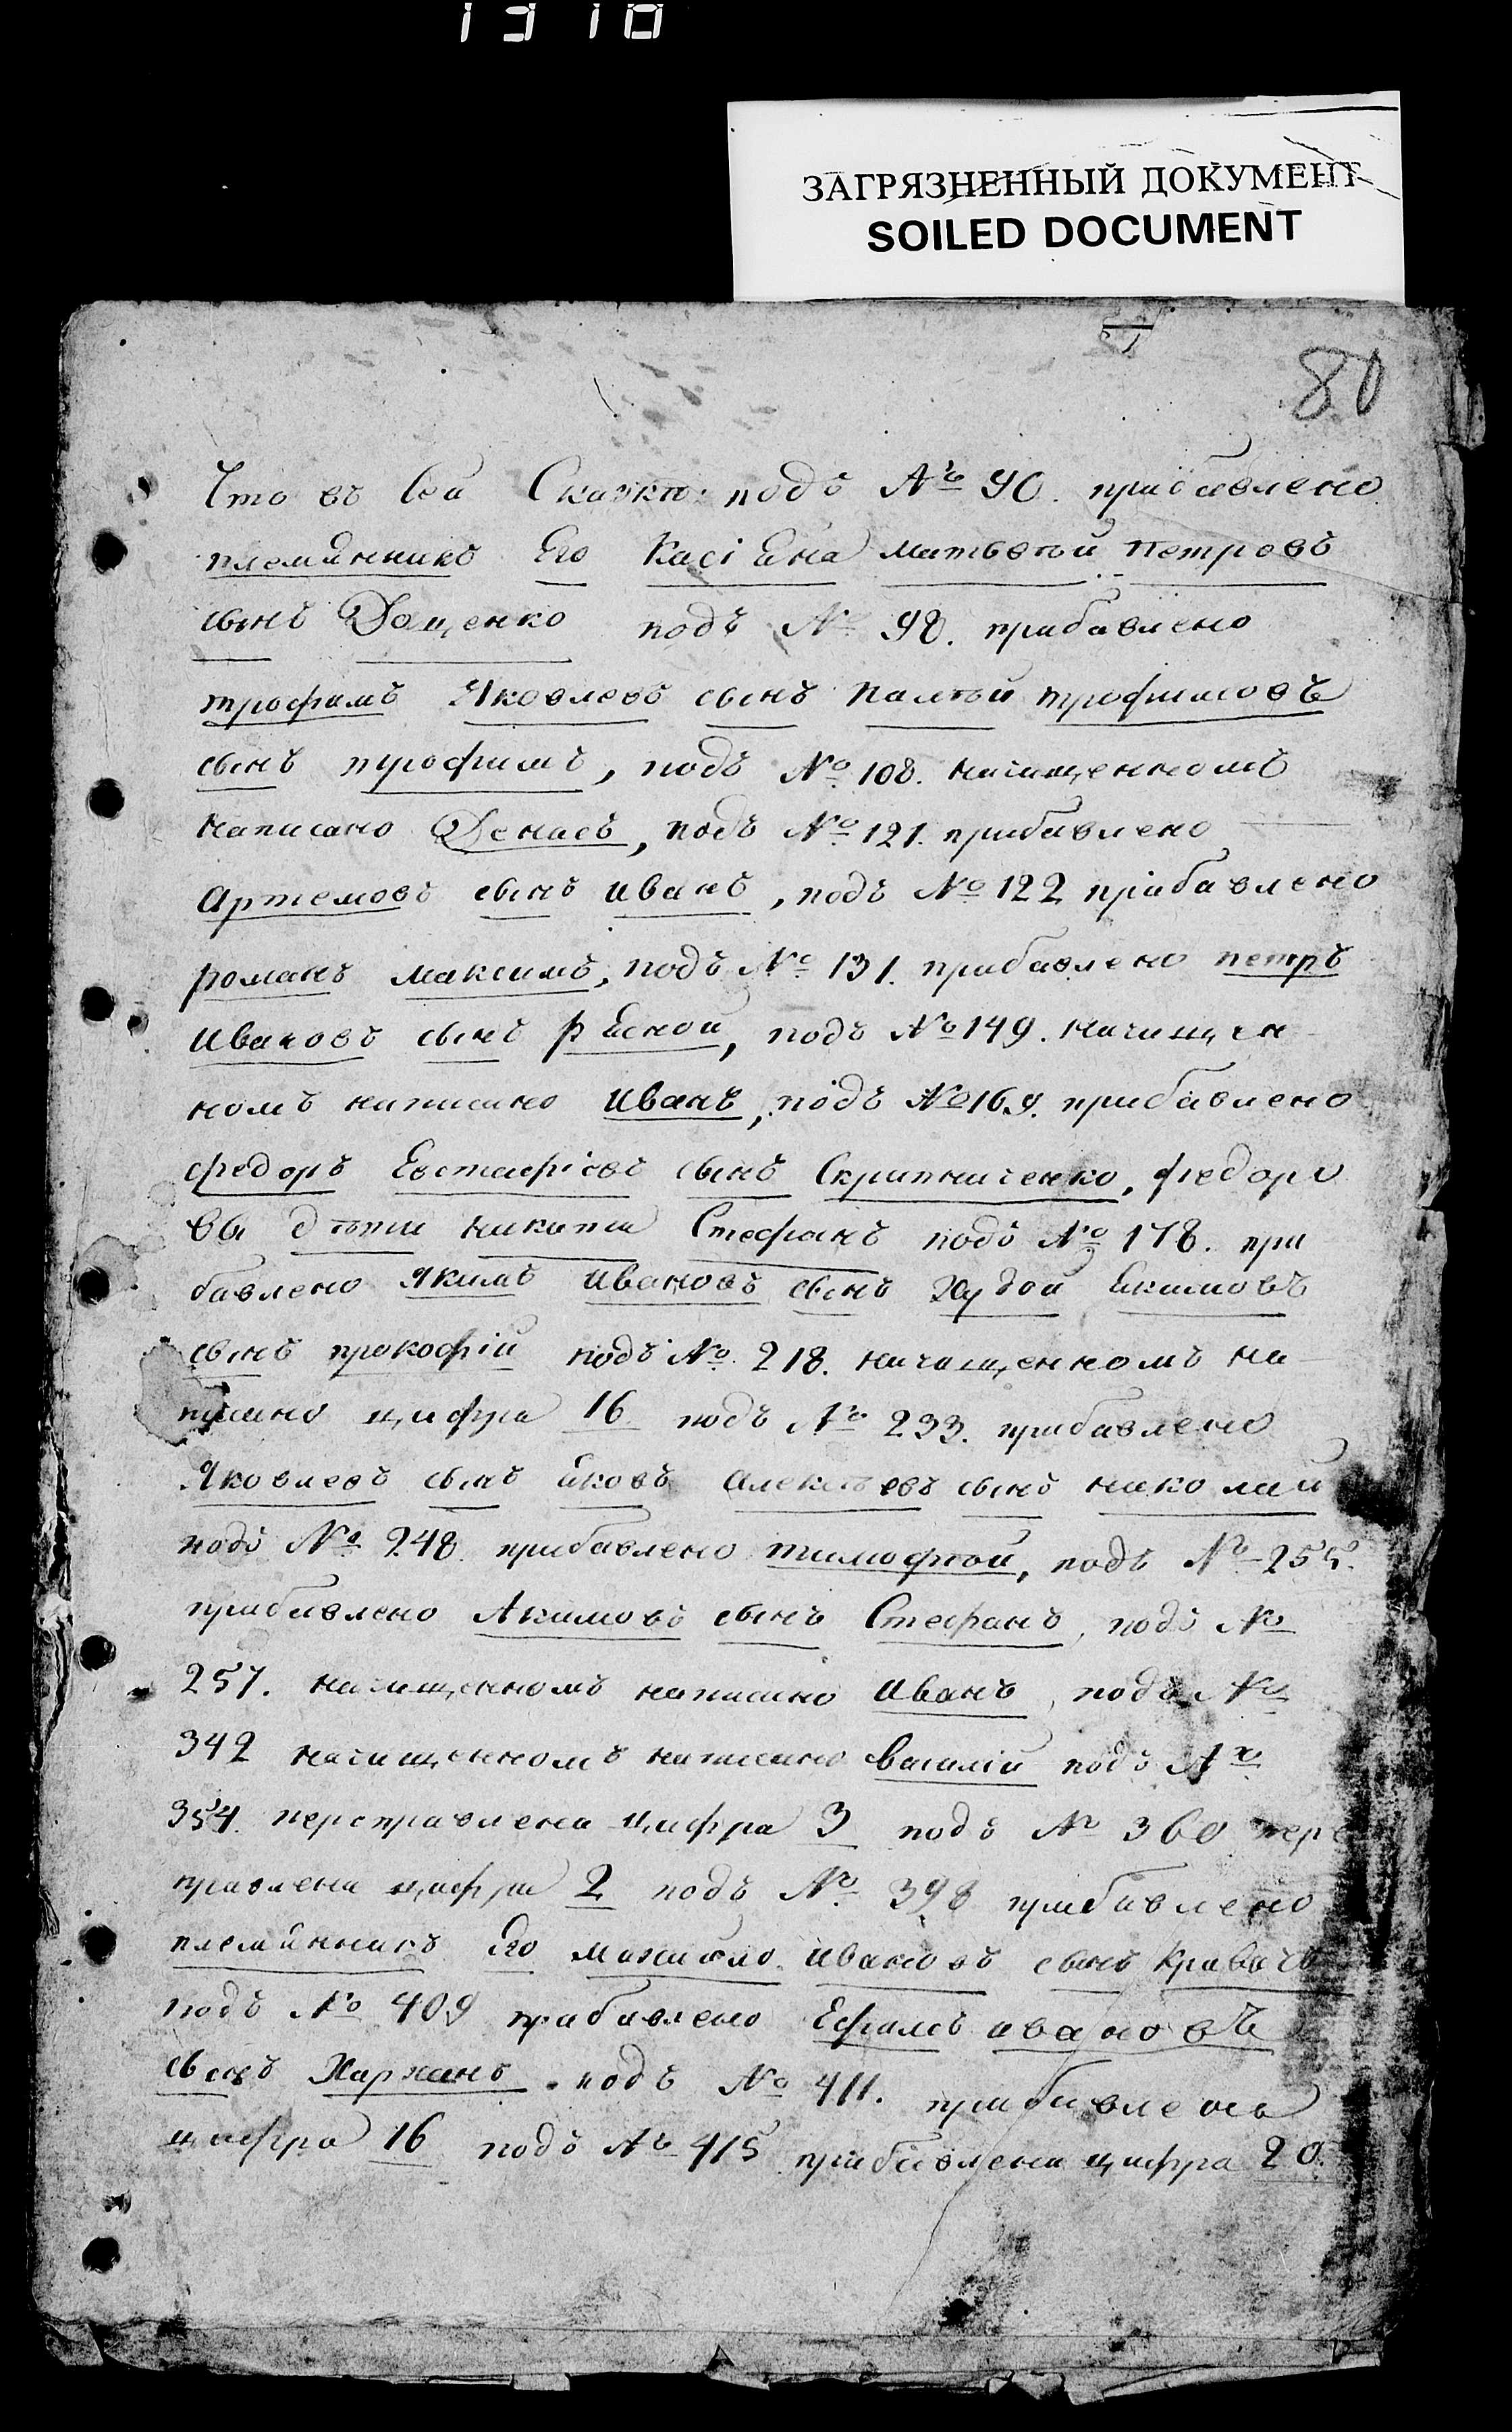 1310
ЗАГРЯЗНЕННЫЙ ДОКУМЕНТ
SOILED DOCUMENT
80
Что въ сей Сказкѣ подъ № 90. прибавлено
племянникъ Его Касіяна матьвѣй петровъ
сынъ Доценко подъ № 98. прибавлено
трофимъ Яковлевъ сынъ палѣй трофимовъ
сынъ трофимъ, подъ № 108. начищенномъ
написано Денисъ, подъ № 121. прибавлено
Артемовъ сынъ иванъ, подъ № 122 прибавлено
романъ максимъ, подъ № 131. прибавлено петръ
Ивановъ сынъ рясной, подъ № 149. начищен
номъ написано иванъ, подъ № 169. прибавлено
федоръ Евстафіевъ сынъ Скрипниченко, федоро
вы дѣти никита Стефанъ подъ № 178. при
бавлено Якимъ ивановъ сынъ худой Якимовъ
сынъ прокофій подъ № 218. начищенномъ на
писано цифра 16 подъ № 233. прибавлено
Яковлевъ сынъ яковъ алексѣевъ сынъ николай
подъ № 248. прибавлено тимофѣй, подъ № 255.
прибавлено Акимовъ сынъ Стефанъ, подъ №
257. начищенномъ написано иванъ, подъ №
342 начищенномъ написано василій подъ №
354. переправлена цифра 3 подъ № 360 пере
правлена цифра 2 подъ № 398 прибавлено
племянникъ Его ивановъ сынъ
подъ № 409 прибавлено Ефимъ ивановъ
сынъ подъ № 411. прибавлена
цифра 16 подъ № 415 прибавлена цифра 20.